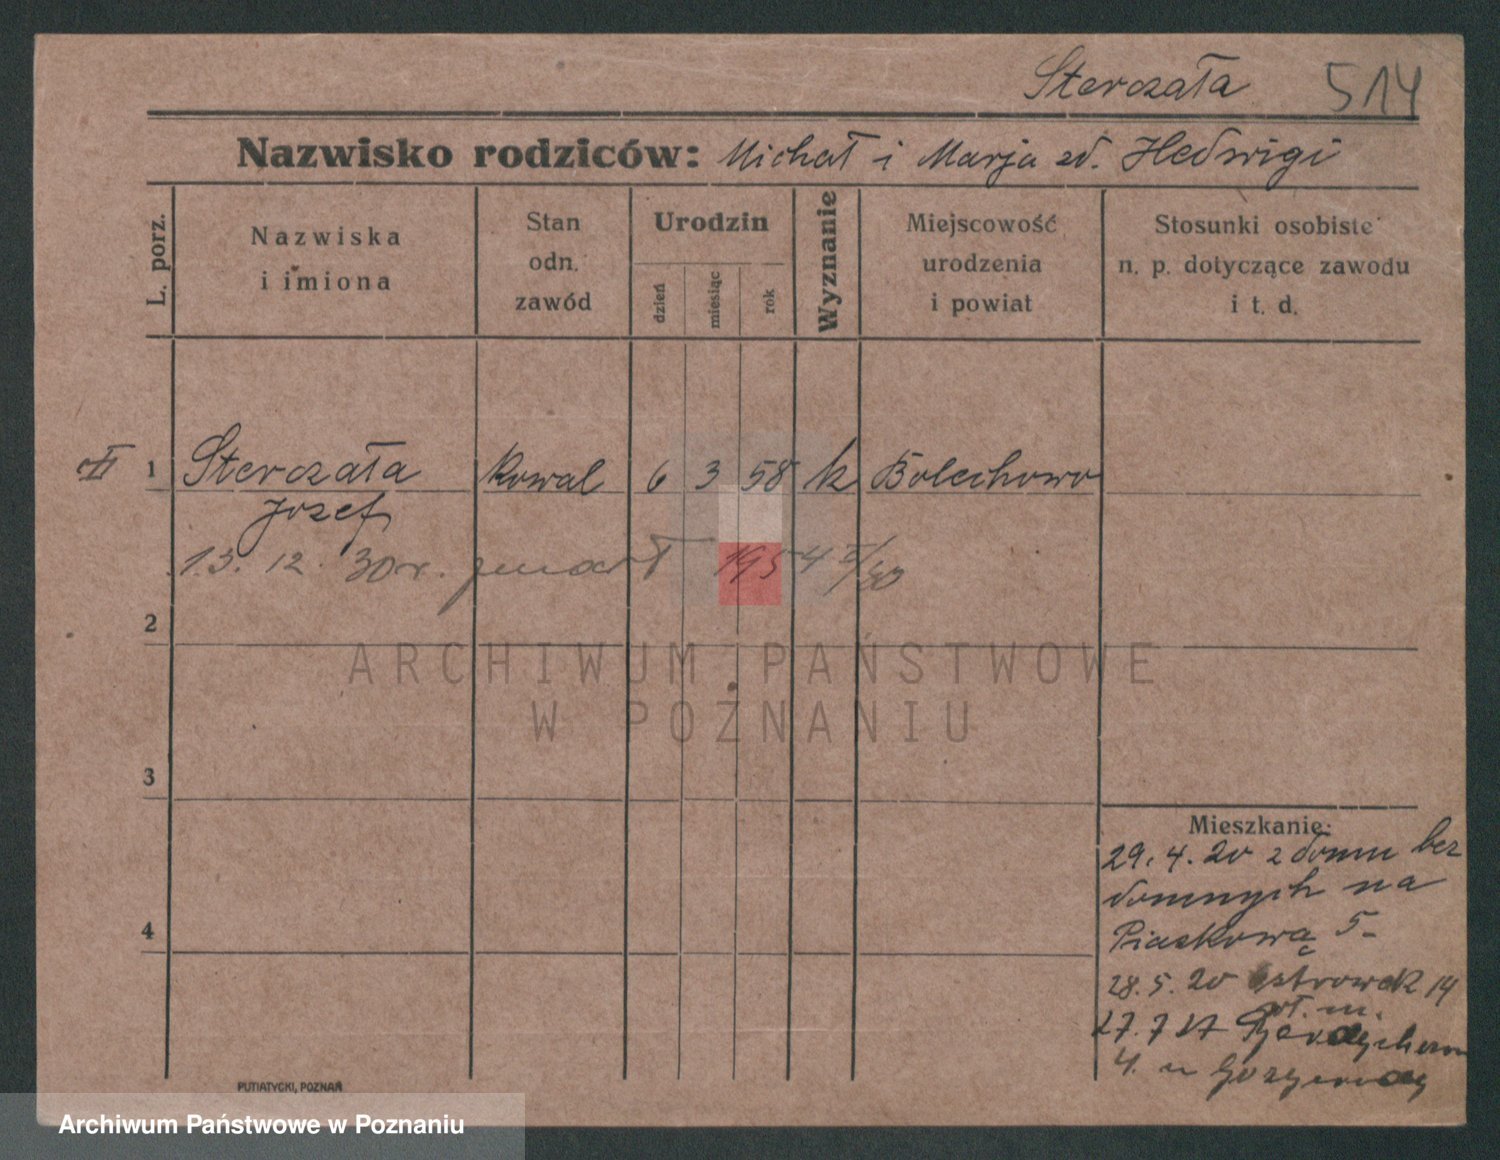 Sterczała 514
Nazwisko rodziców: Michał i Marja zd. Hedwigi
L. porz.
Nazwiska
i imiona
Stan
odn.
zawód
Urodzin
dzień
miesiąc
rok
Wyznanie
Miejscowość
urodzenia
i powiat
Stosunki osobiste
n. p. dotyczące zawodu
i t. d.
II 1 Sterczała kowal 6 3 58 k Bolechowo
Józef
13. 12. 30 r. zmarł 1954 /30
2
ARCHIWUM PAŃSTWOWE
W POZNANIU
3
Mieszkanie:
29. 4. 20 z domu bez
domnych na
4
Piaskową 5-
28. 5. 20 Ostrowek 14
27. 7 27
4. u
PUTIATYCKI, POZNAŃ
Archiwum Państwowe w Poznaniu